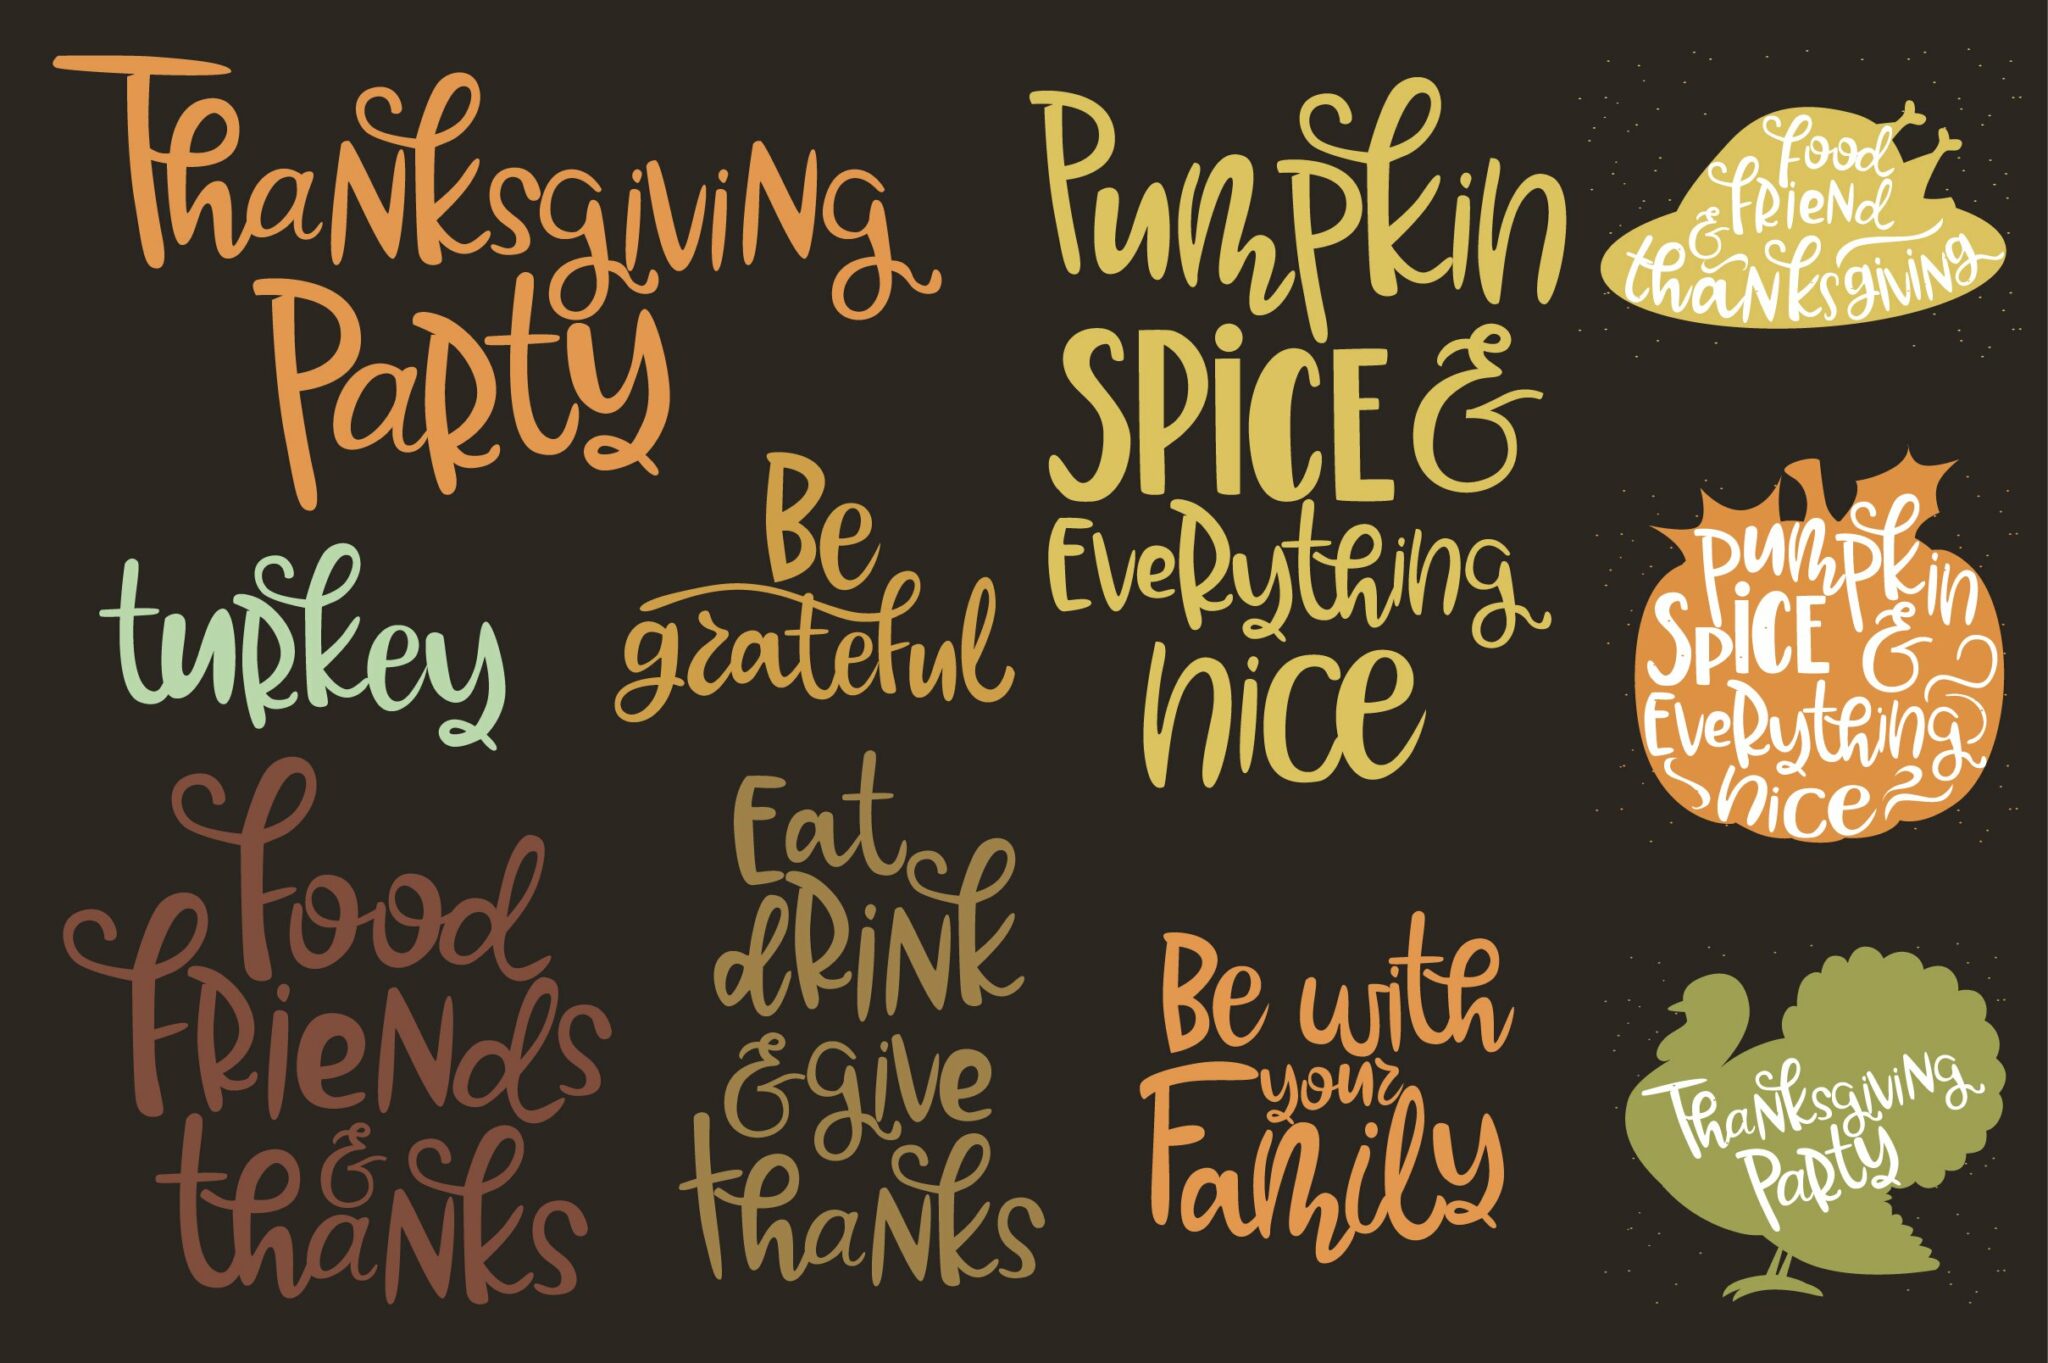 Thanksgiving
Party
Pumpkin
Spice &
Everything
nice
food
friend
&
thanksgiving
turkey
Be
grateful
pumpkin
spice &
Everything
nice
food
friends
&
thanks
Eat
drink
& give
thanks
Be with
your
Family
Thanksgiving
Party